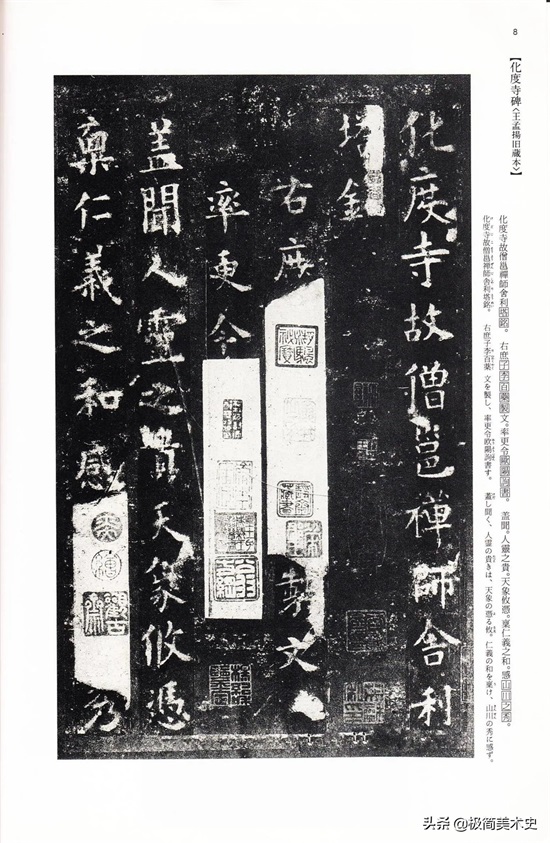 8
【化度寺碑〈王孟揚旧蔵本〉】
化度寺故僧邕禅師舎利塔銘。 右庶子李百藥製文。率更令歐陽詢書。 蓋聞。人靈之貴。天象攸憑。稟仁義之和。感山川之秀。
化度寺故僧邕禅師舎利塔銘。 右庶子李百薬 文を製し、率更令欧陽詢書す。 蓋し聞く、人霊の貴きは、天象の憑る攸。仁義の和を稟け、山川の秀に感ず。
化度寺故僧邕禅師舎利
塔銘
右庶 製文
率更令
蓋聞人靈之貴天象攸憑
稟仁義之和感 秀
头条 @极简美术史